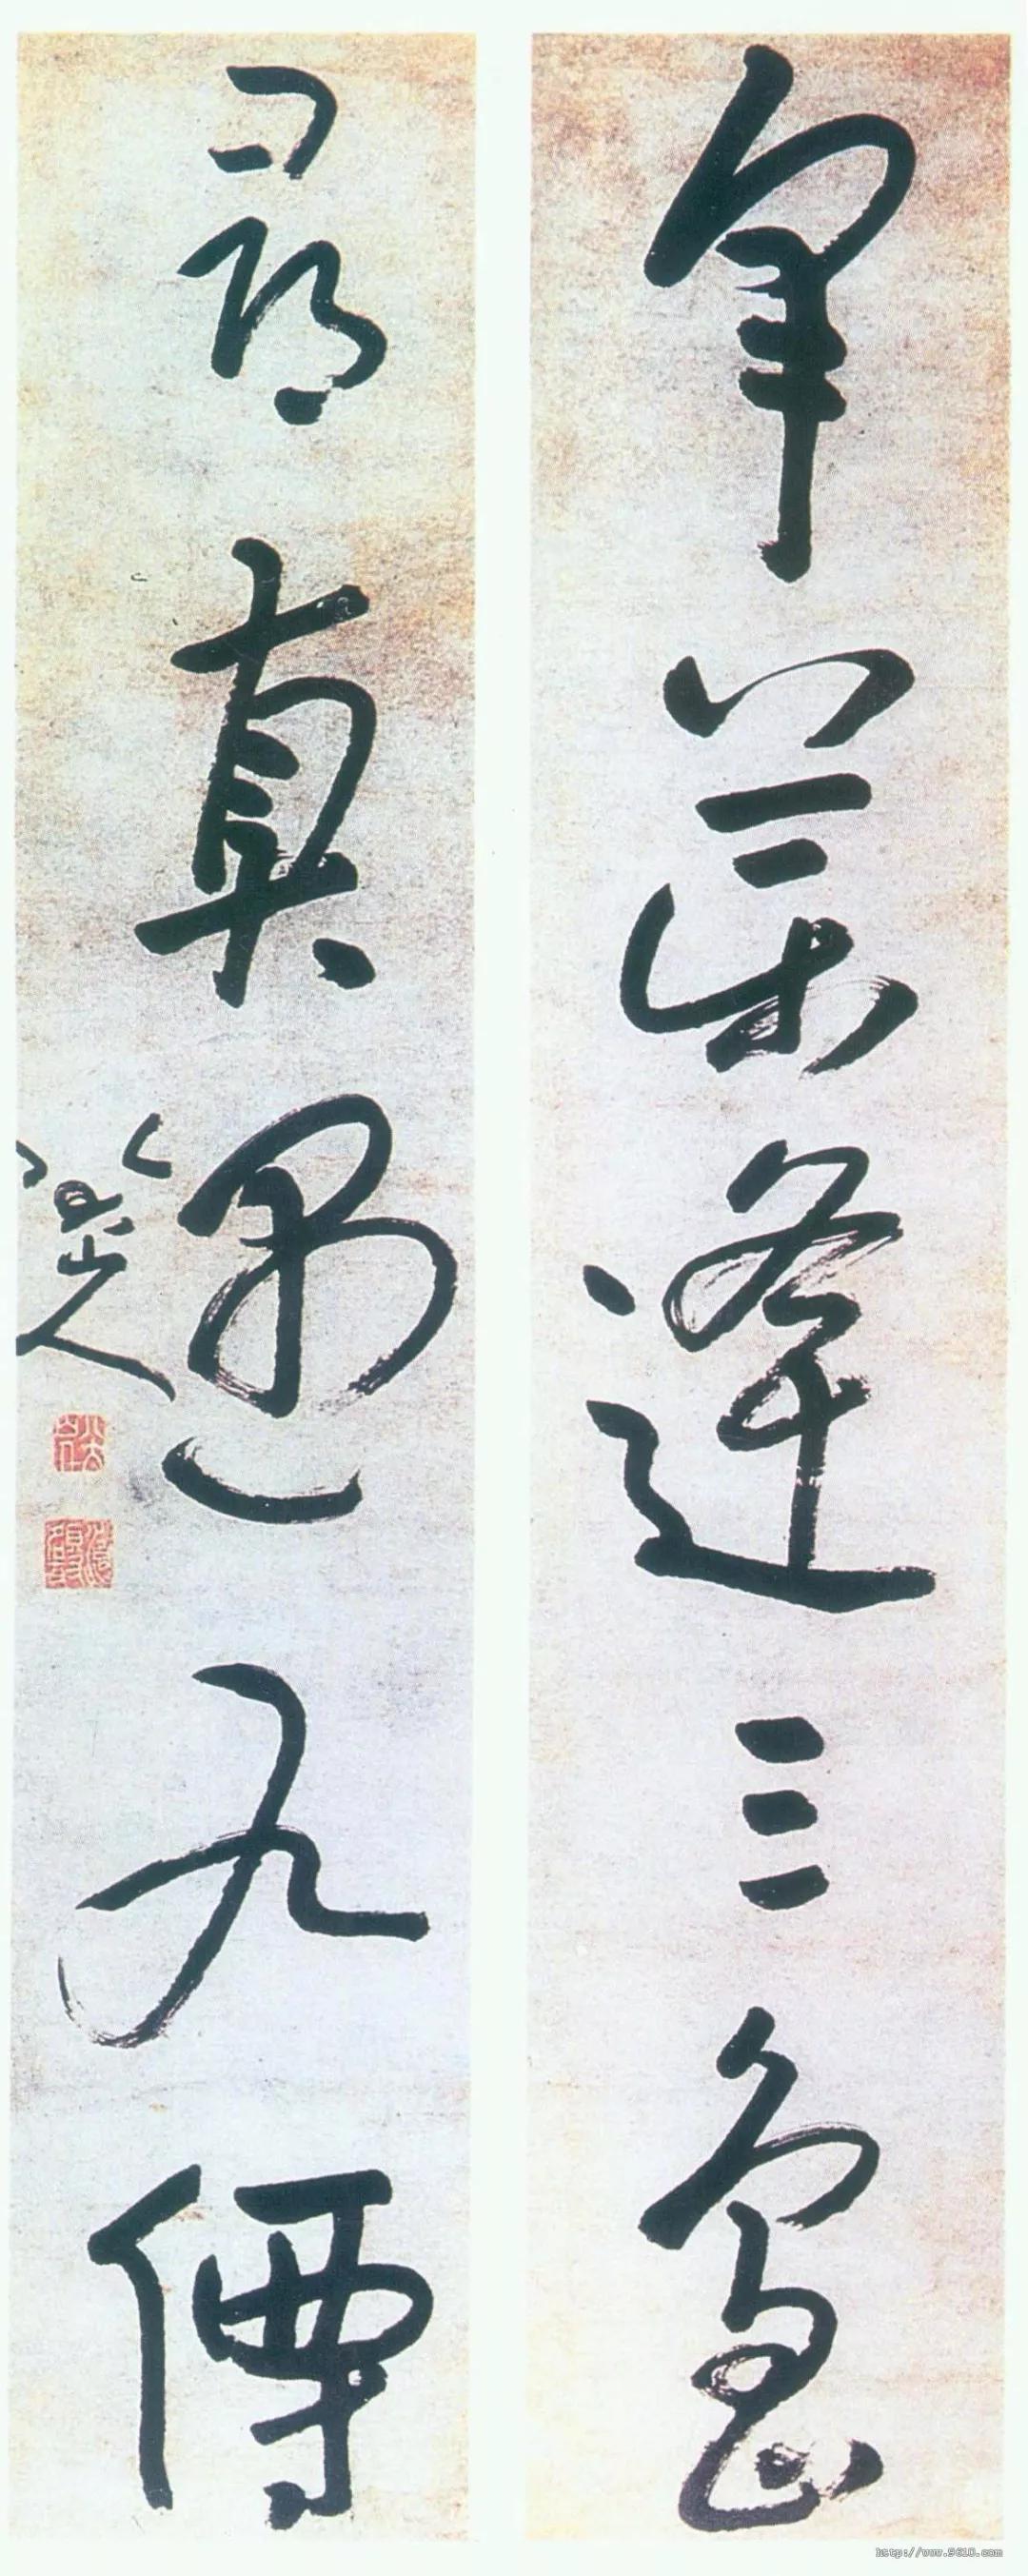 采藥逢三島
尋真遇九僊
八大山人
http://www.9610.com